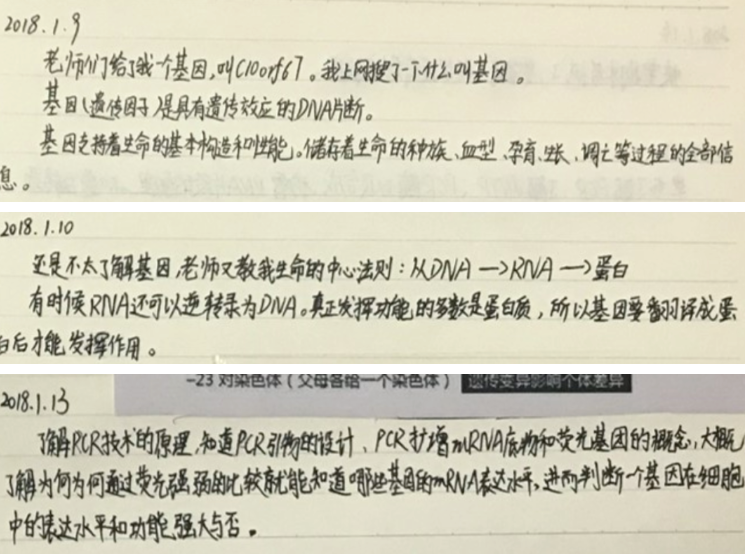 2018.1.9
老师们给了我一个基因,叫C10orf67。我上网搜了一下什么叫基因。
基因(遗传因子)是具有遗传效应的DNA片断。
基因支持着生命的基本构造和性能。储存着生命的种族、血型、孕育、生长、凋亡等过程的全部信
息。
2018.1.10
还是不太了解基因,老师又教我生命的中心法则:从DNA→RNA→蛋白
有时候RNA还可以逆转录为DNA。真正发挥功能的多数是蛋白质,所以基因要翻译成蛋
白后才能发挥作用。
-23 对染色体(父母各给一个染色体) 遗传变异影响个体差异
2018.1.13
了解PCR技术的原理,知道PCR引物的设计、PCR扩增mRNA底物和荧光基因的概念,大概
了解为何为何通过荧光强弱的比较就能知道哪些基因的mRNA表达水平,进而判断一个基因在细胞
中的表达水平和功能强大与否。